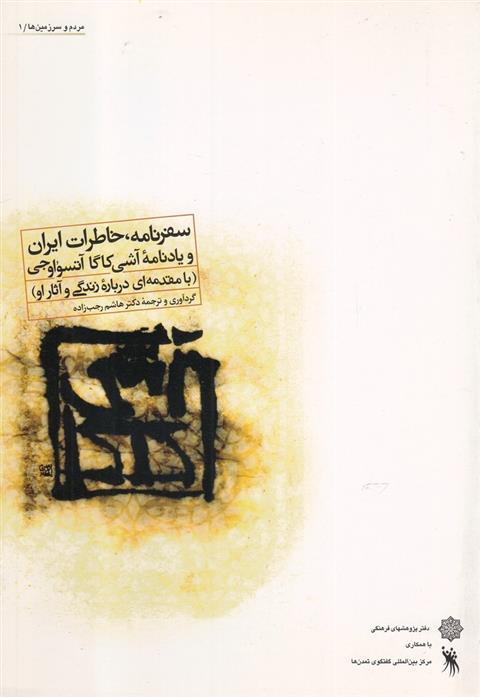 مردم و سرزمین‌ها/۱
سفرنامه، خاطرات ایران
و یادنامهٔ آشی کاگا آتسواوجی
(با مقدمه‌ای دربارهٔ زندگی و آثار او)
گردآوری و ترجمهٔ دکتر هاشم رجب‌زاده
دفتر پژوهشهای فرهنگی
با همکاری
مرکز بین‌المللی گفتگوی تمدن‌ها